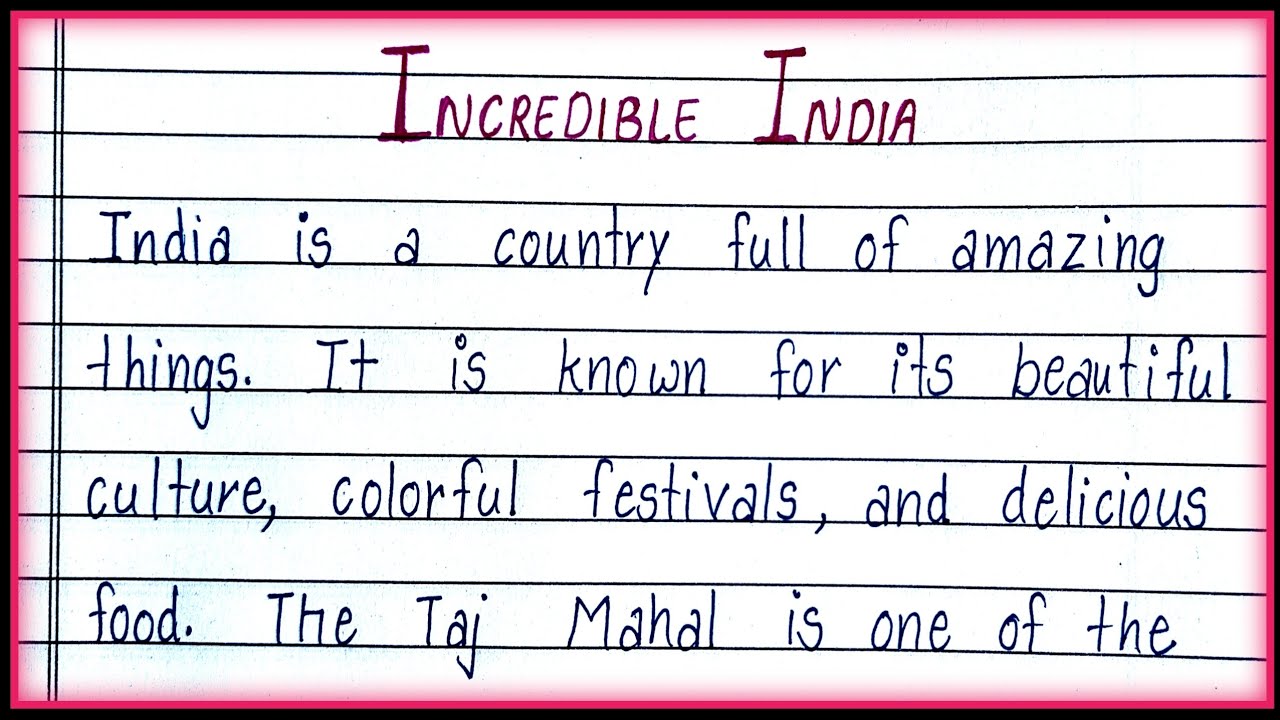 INCREDIBLE INDIA
India is a country full of amazing
things. It is known for its beautiful
culture, colorful festivals, and delicious
food. The Taj Mahal is one of the